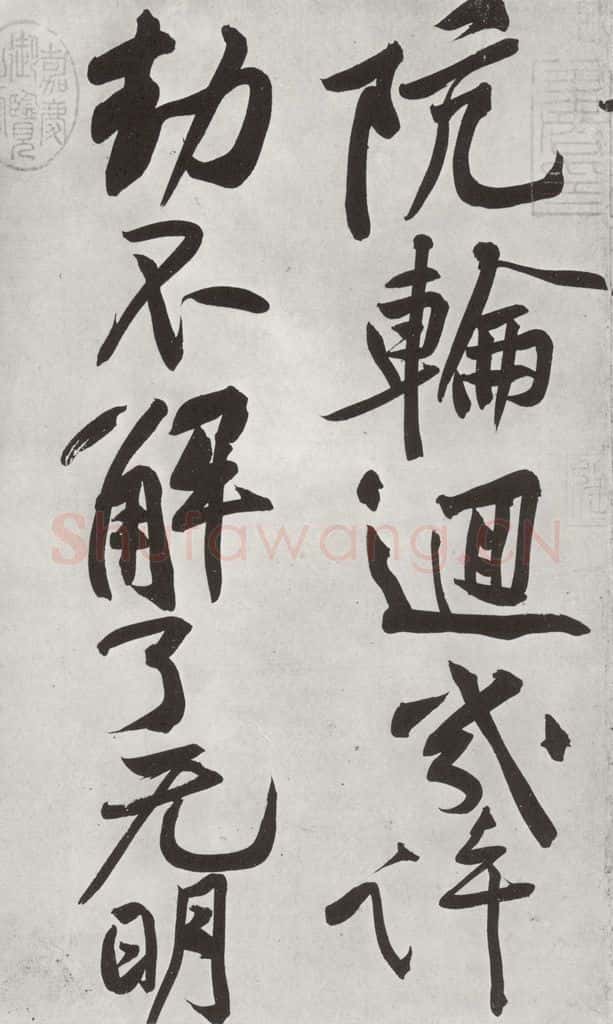 阬輪迴幾許
劫不解了无明
嘉慶
御覽
Shufawang.CN